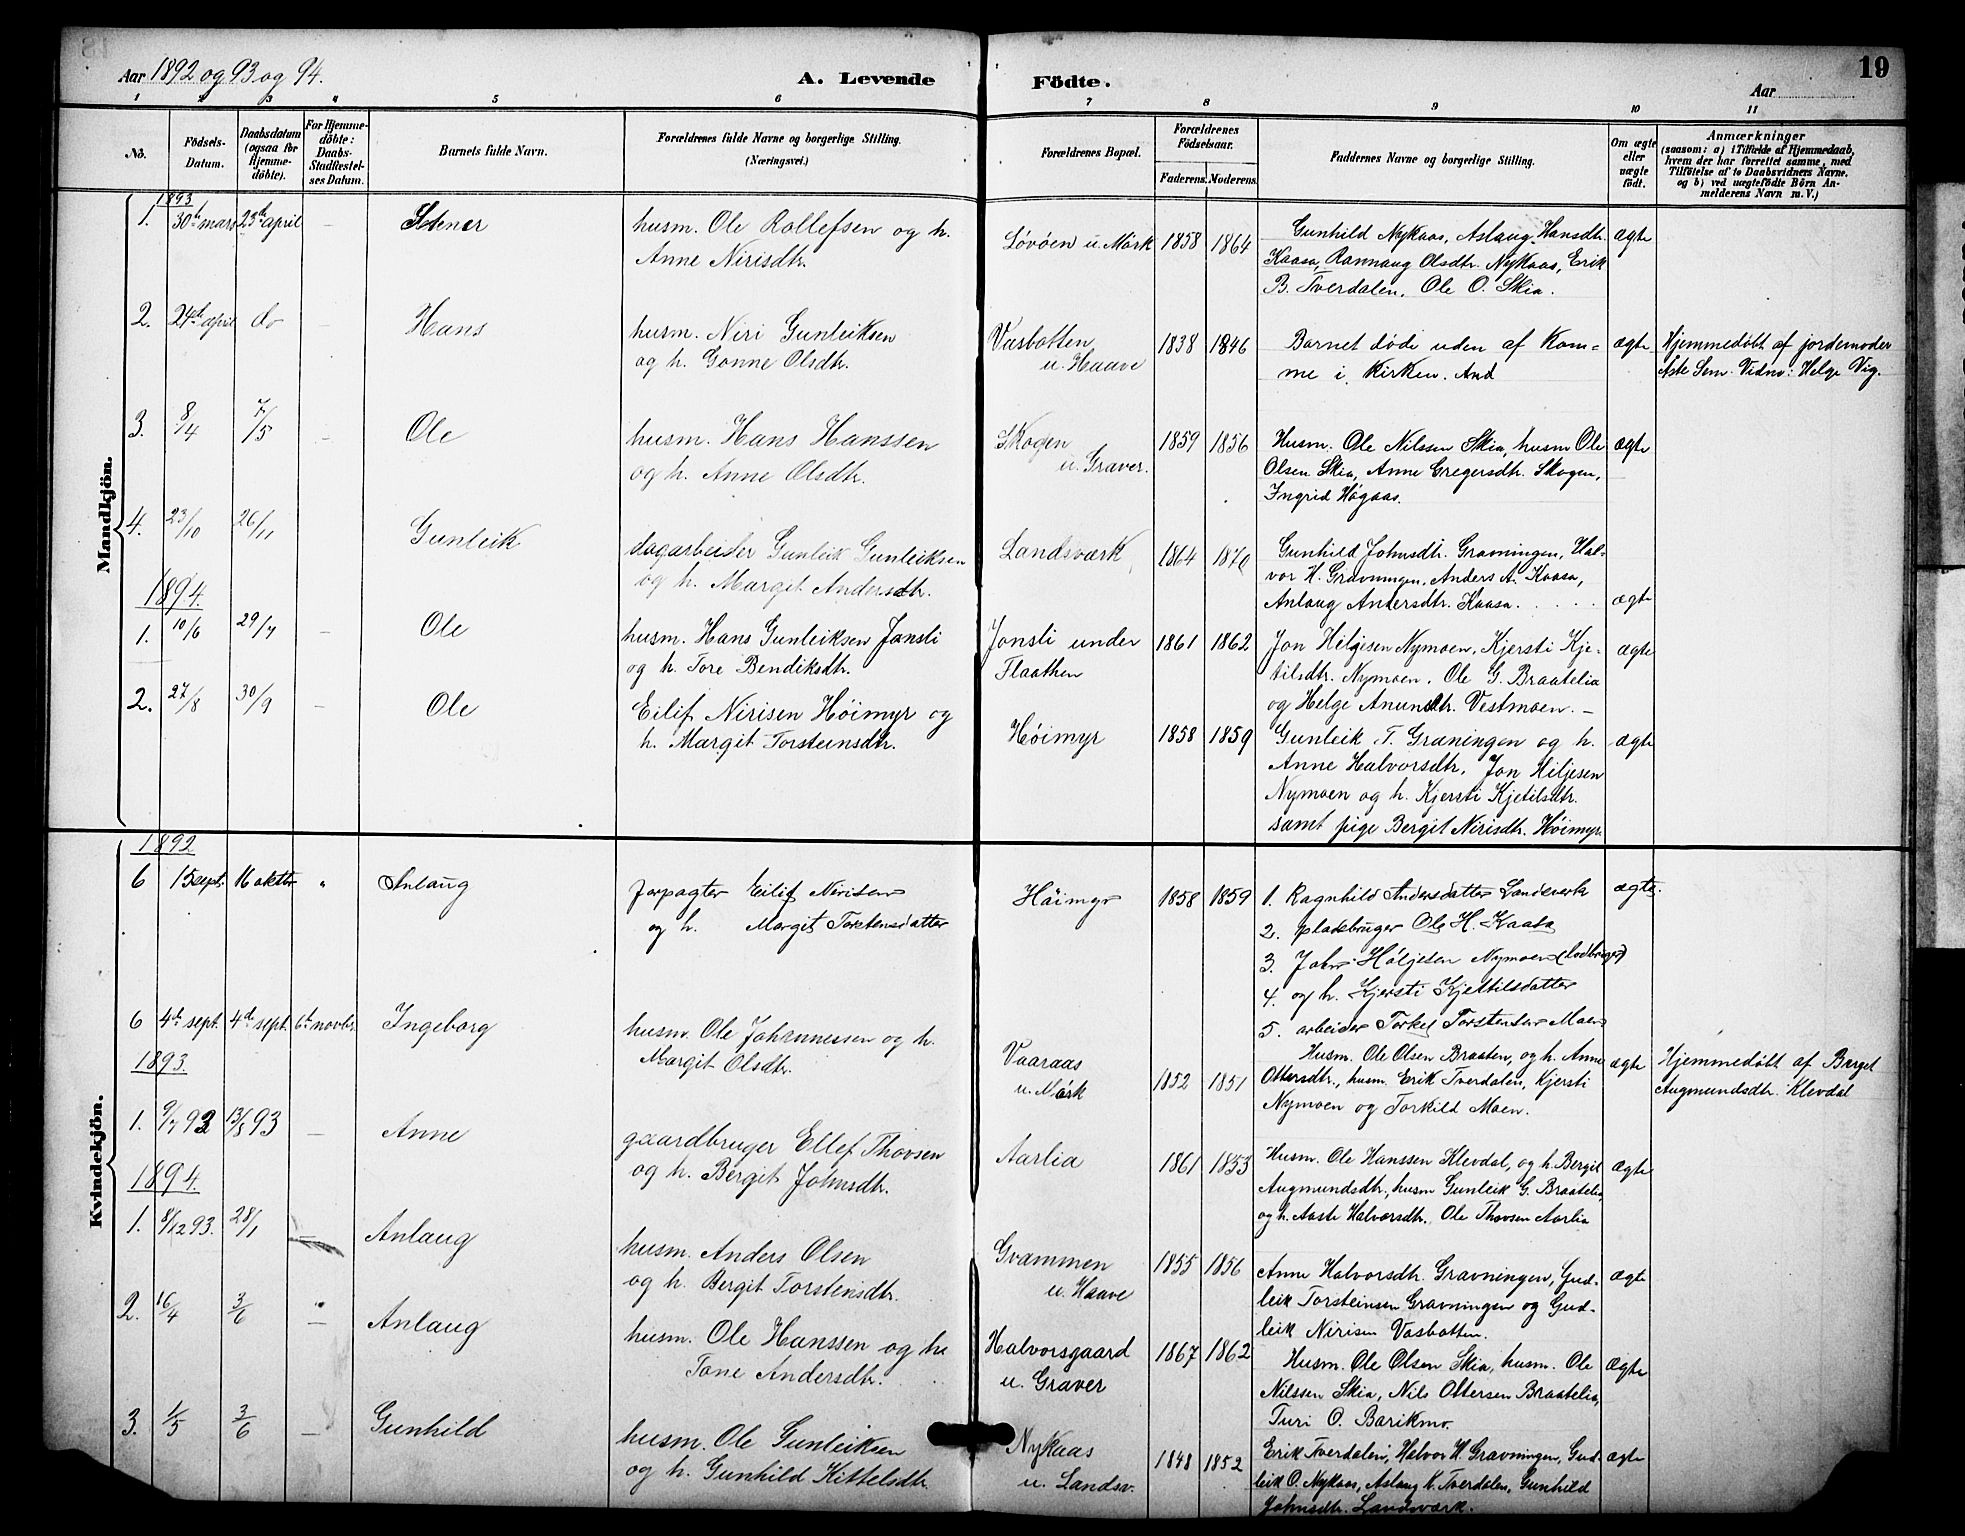 Aar 1892 og 93 og 94.
A. Levende Födte.
Aar
19
1 2 3 4 5 6 7 8 9 10 11
No.
Födsels-Datum.
Daabsdatum (ogsaa for Hjemme-döbte).
For Hjemme-döbte: Daabs-Stadfæstel-ses Datum.
Barnets fulde Navn.
Forældrenes fulde Navne og borgerlige Stilling. (Næringsvei.)
Forældrenes Bopæl.
Forældrenes Födselsaar.
Faderens. Moderens.
Faddernes Navne og borgerlige Stilling.
Om ægte eller uægte födt.
Anmærkninger
(saasom: a) i Tilfælde af Hjemmedaab, hvem der har forrettet samme, med Tilföielse af to Daabsvidners Navne. og b) ved uægtefödte Börn An-melderens Navn m. V.)
Mandkjön.
1893
1. 30th mars 23th april – Stener
husm. Ole Rollefsen og h.
Anne Nirisdtr.
Lövöen u. Mörk 1858 1864
Gunhild Nykaas, Aslaug Hansdtr.
Kaasa, Rannaug Olsdtr. Nykaas, Erik
B. Tverdalen, Ole O. Skia.
ægte
2. 24th april do – Hans
husm. Niri Gunleiksen
og h. Gonne Olsdtr.
Vasbotten
u. Haave
1838 1846
Barnet döde uden af kom-
me i Kirken. And
ægte
Hjemmedöbt af jordemoder
Aste Sem. Vidne: Helge Vig.
3. 8/4 7/5 – Ole
husm. Hans Hanssen
og h. Anne Olsdtr.
Skogen
u. Graver.
1859 1856
Husm. Ole Nilssen Skia, husm Ole
Olsen Skia, Anne Gregersdtr. Skogen,
Ingrid Högaas.
ægte
4. 23/10 26/11 Gunleik
dagarbeider Gunleik Gunleiksen
og h. Margit Andersdtr.
Landsværk 1864 1870
Gunhild Johnsdtr. Gravningen, Hal-
vor H. Gravningen, Anders A. Kaasa,
Anlaug Andersdtr. Kaasa.
ægte
1894.
1. 10/6 29/7 – Ole
husm. Hans Gunleiksen Jønsli
og h. Tore Bendiksdtr.
Jonsli under
Flaathen
1861 1862
Jon Hilgisen Nymoen, Kjersti Kje-
tilsdtr. Nymoen, Ole G. Braatelia
og Helge Anunsdtr. Vestmoen. –
ægte
2. 27/8 30/9 – Ole
Eilif Nirisen Höimyr og
h. Margit Torsteinsdtr.
Höimyr 1858 1859
Gunleik T. Graningen og h.
Anne Halvorsdtr, Jon Hiljesen
Nymoen og h. Kjersti Kjetilsdtr.
samt pige Bergit Nirisdtr. Höimyr.
ægte
Kvindekjön.
1892
6 15 sept. 16 oktbr " Anlaug
forpagter Eilif Nerisen
og h. Margit Torstensdatter
Höimyr 1858 1859
1. Ragnhild Andersdatter Landsverk
2. pladsbruger Ole H. Kaasa
3. John Höljesen Nymoen (lodbruger)
4. og h. Kjersti Kjettilsdatter
5. arbeider Torkel Torstensen Moen
ægte.
6 4de sept. 4de sept. 6te novbr. Ingeborg
husm. Ole Johannessen og h.
Margit Olsdtr.
Vaaraas
u. Mörk
1852 1851
Husm. Ole Olsen Braaten, og h. Anne
Ottersdtr., husm. Erik Tverdalen, Kjersti
Nymoen og Torkild Moen.
ægte
Hjemmedöbt af Berget
Augmundsdtr. Klevdal
1893.
1. 9/7 92 13/8 93 – Anne
gaardbruger Ellef Thovsen
og h. Bergit Johnsdtr.
Aarlia 1861 1853
Husm. Ole Hanssen Klevdal, og h. Bergit
Augmundsdtr, husm Gunleik G. Braatelia,
og h. Aaste Halvorsdtr. Ole Thovsen Aarlia
ægte
1894.
1. 8/12 93. 28/1 – Anlaug
husm. Anders Olsen
og h. Bergit Torsteinsdtr.
Gvammen
u. Haave
1855 1856
Anne Halvorsdtr. Gravningen, Gud-
leik Torsteinsen Gravningen og Gud-
leik Nirisen Vasbotten.
ægte
2. 16/4 3/6 – Anlaug
husm. Ole Hanssen og h.
Tone Andersdtr.
Halvorsgaard
u. Graver
1867 1862
Husm. Ole Olsen Skia, husm. Ole
Nilssen Skia, Nils Ottersen Braatelia,
Turi O. Barikmo.
ægte
3. 1/5 3/6 – Gunhild
husm. Ole Gunleiksen
og h. Gunhild Kittelsdtr.
Nykaas
u. Landsv.
1848 1852
Erik Tverdalen, Halvor H. Gravningen, Gud-
leik O. Nykaas, Aslaug K. Tverdalen, Gunhild
Johnsdtr. Landsværk.
ægte